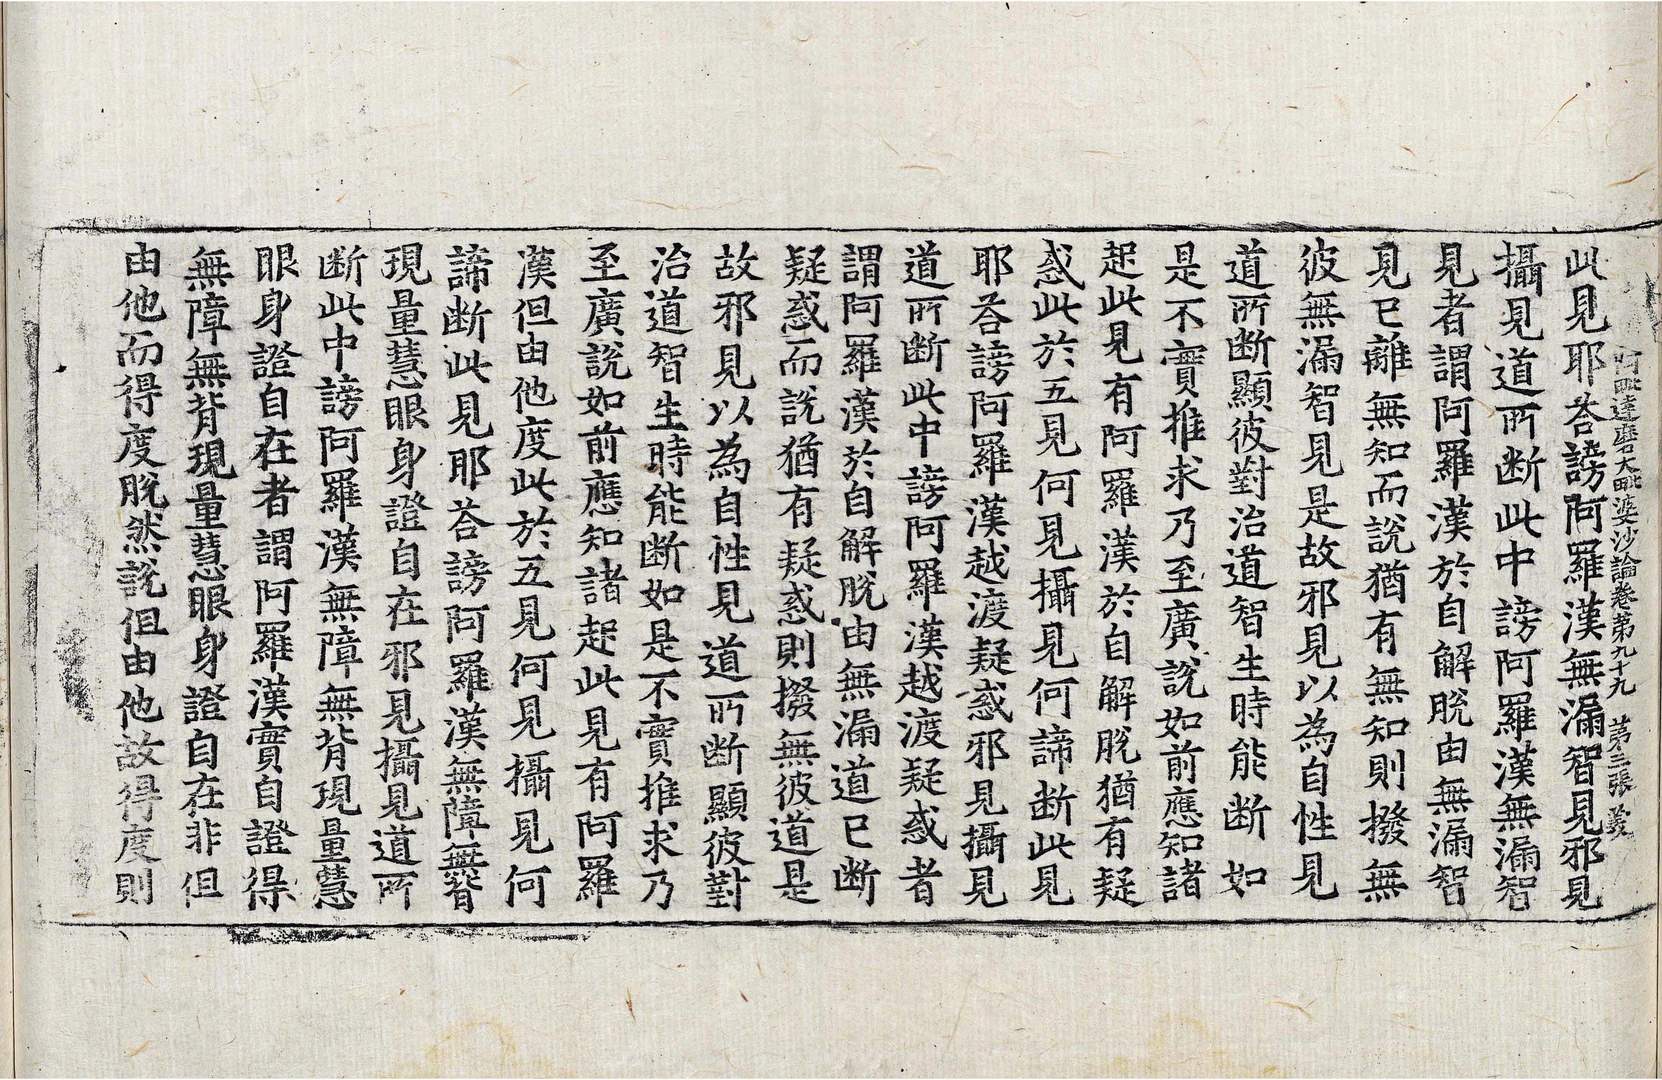 阿毗達磨大毗婆沙論卷第九十九 第三張 義
此見耶荅謗阿羅漢無漏智見邪見
攝見道所斷此中謗阿羅漢無漏智
見者謂阿羅漢於自解脫由無漏智
見已離無知而說猶有無知則撥無
彼無漏智見是故邪見以為自性見
道所斷顯彼對治道智生時能斷如
是不實推求乃至廣說如前應知諸
起此見有阿羅漢於自解脫猶有疑
惑此於五見何見攝見何諦斷此見
耶荅謗阿羅漢越渡疑惑邪見攝見
道所斷此中謗阿羅漢越渡疑惑者
謂阿羅漢於自解脫由無漏道已斷
疑惑而說猶有疑惑則撥無彼道是
故邪見以為自性見道所斷顯彼對
治道智生時能斷如是不實推求乃
至廣說如前應知諸起此見有阿羅
漢但由他度此於五見何見攝見何
諦斷此見耶荅謗阿羅漢無障無背
現量慧眼身證自在邪見攝見道所
斷此中謗阿羅漢無障無背現量慧
眼身證自在者謂阿羅漢實自證得
無障無背現量慧眼身證自在非但
由他而得度脫然說但由他故得度則